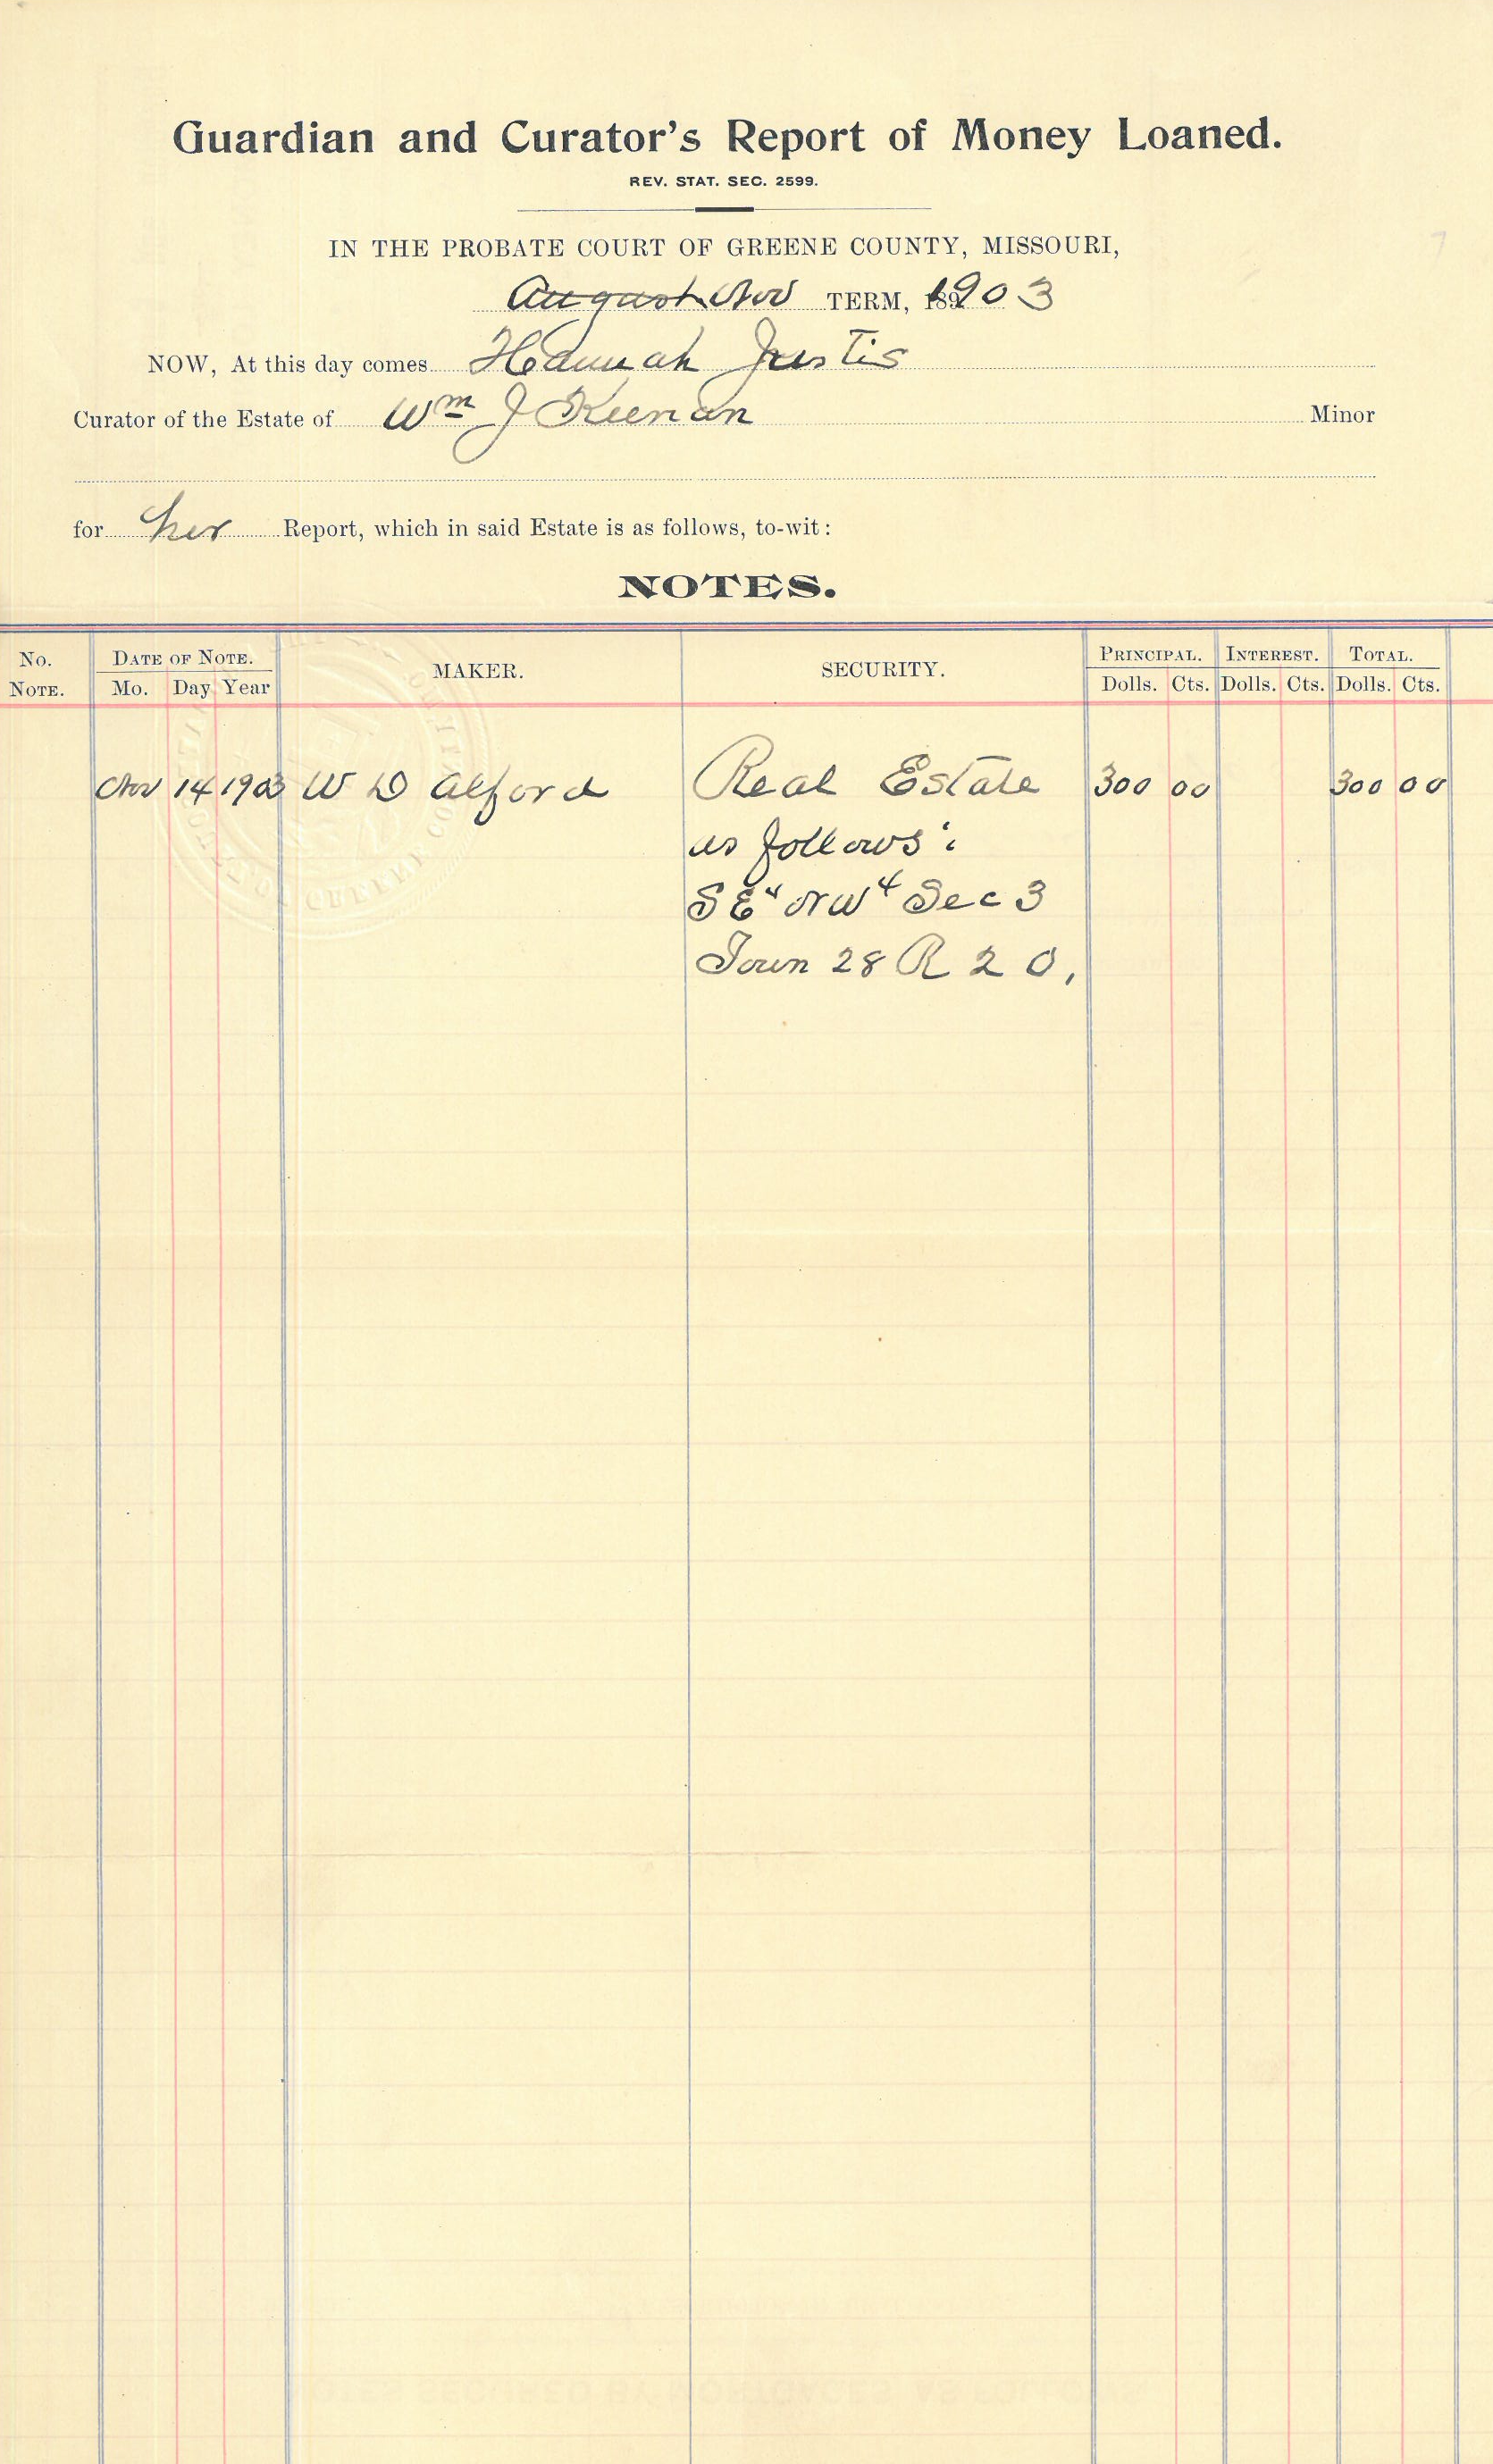 Guardian and Curator's Report of Money Loaned.
REV. STAT. SEC. 2599.
IN THE PROBATE COURT OF GREENE COUNTY, MISSOURI,
August Nov TERM, 1903
NOW, At this day comes Hannah Justis
Curator of the Estate of Wm J Keenan Minor
for her Report, which in said Estate is as follows, to-wit:
NOTES.
No. NOTE. DATE OF NOTE. Mo. Day Year MAKER. SECURITY. PRINCIPAL. Dolls. Cts. INTEREST. Dolls. Cts. TOTAL. Dolls. Cts.
Nov 14 1903 W D Alford Real Estate 300 00 300 00
as follows:
SE4 NW4 Sec 3
Town 28 R 20,